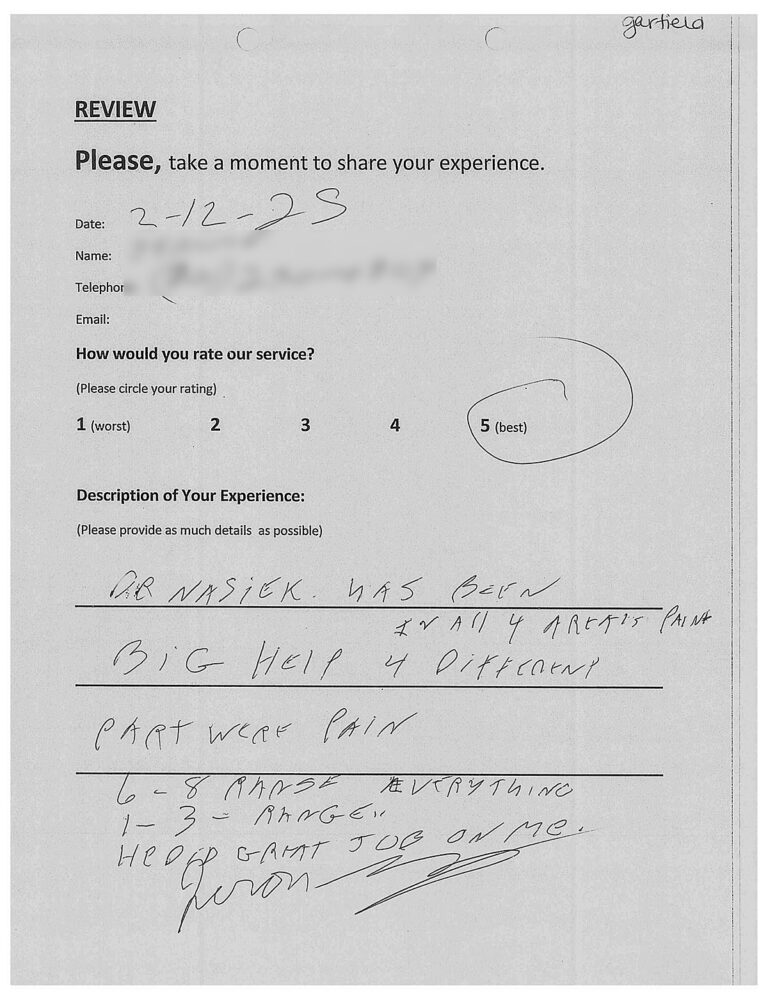 garfield
REVIEW
Please, take a moment to share your experience.
Date: 2-12-25
Name:
Telephon
Email:
How would you rate our service?
(Please circle your rating)
1 (worst) 2 3 4 5 (best)
Description of Your Experience:
(Please provide as much details as possible)
DR NASIEK. HAS BEEN
IN All 4 AREA'S PAIN
BIG HELP 4 DIFFERENT
PART WERE PAIN
6-8 RANGE EVERYTHING
1-3- RANGE"
HE DID GREAT JOB ON ME.